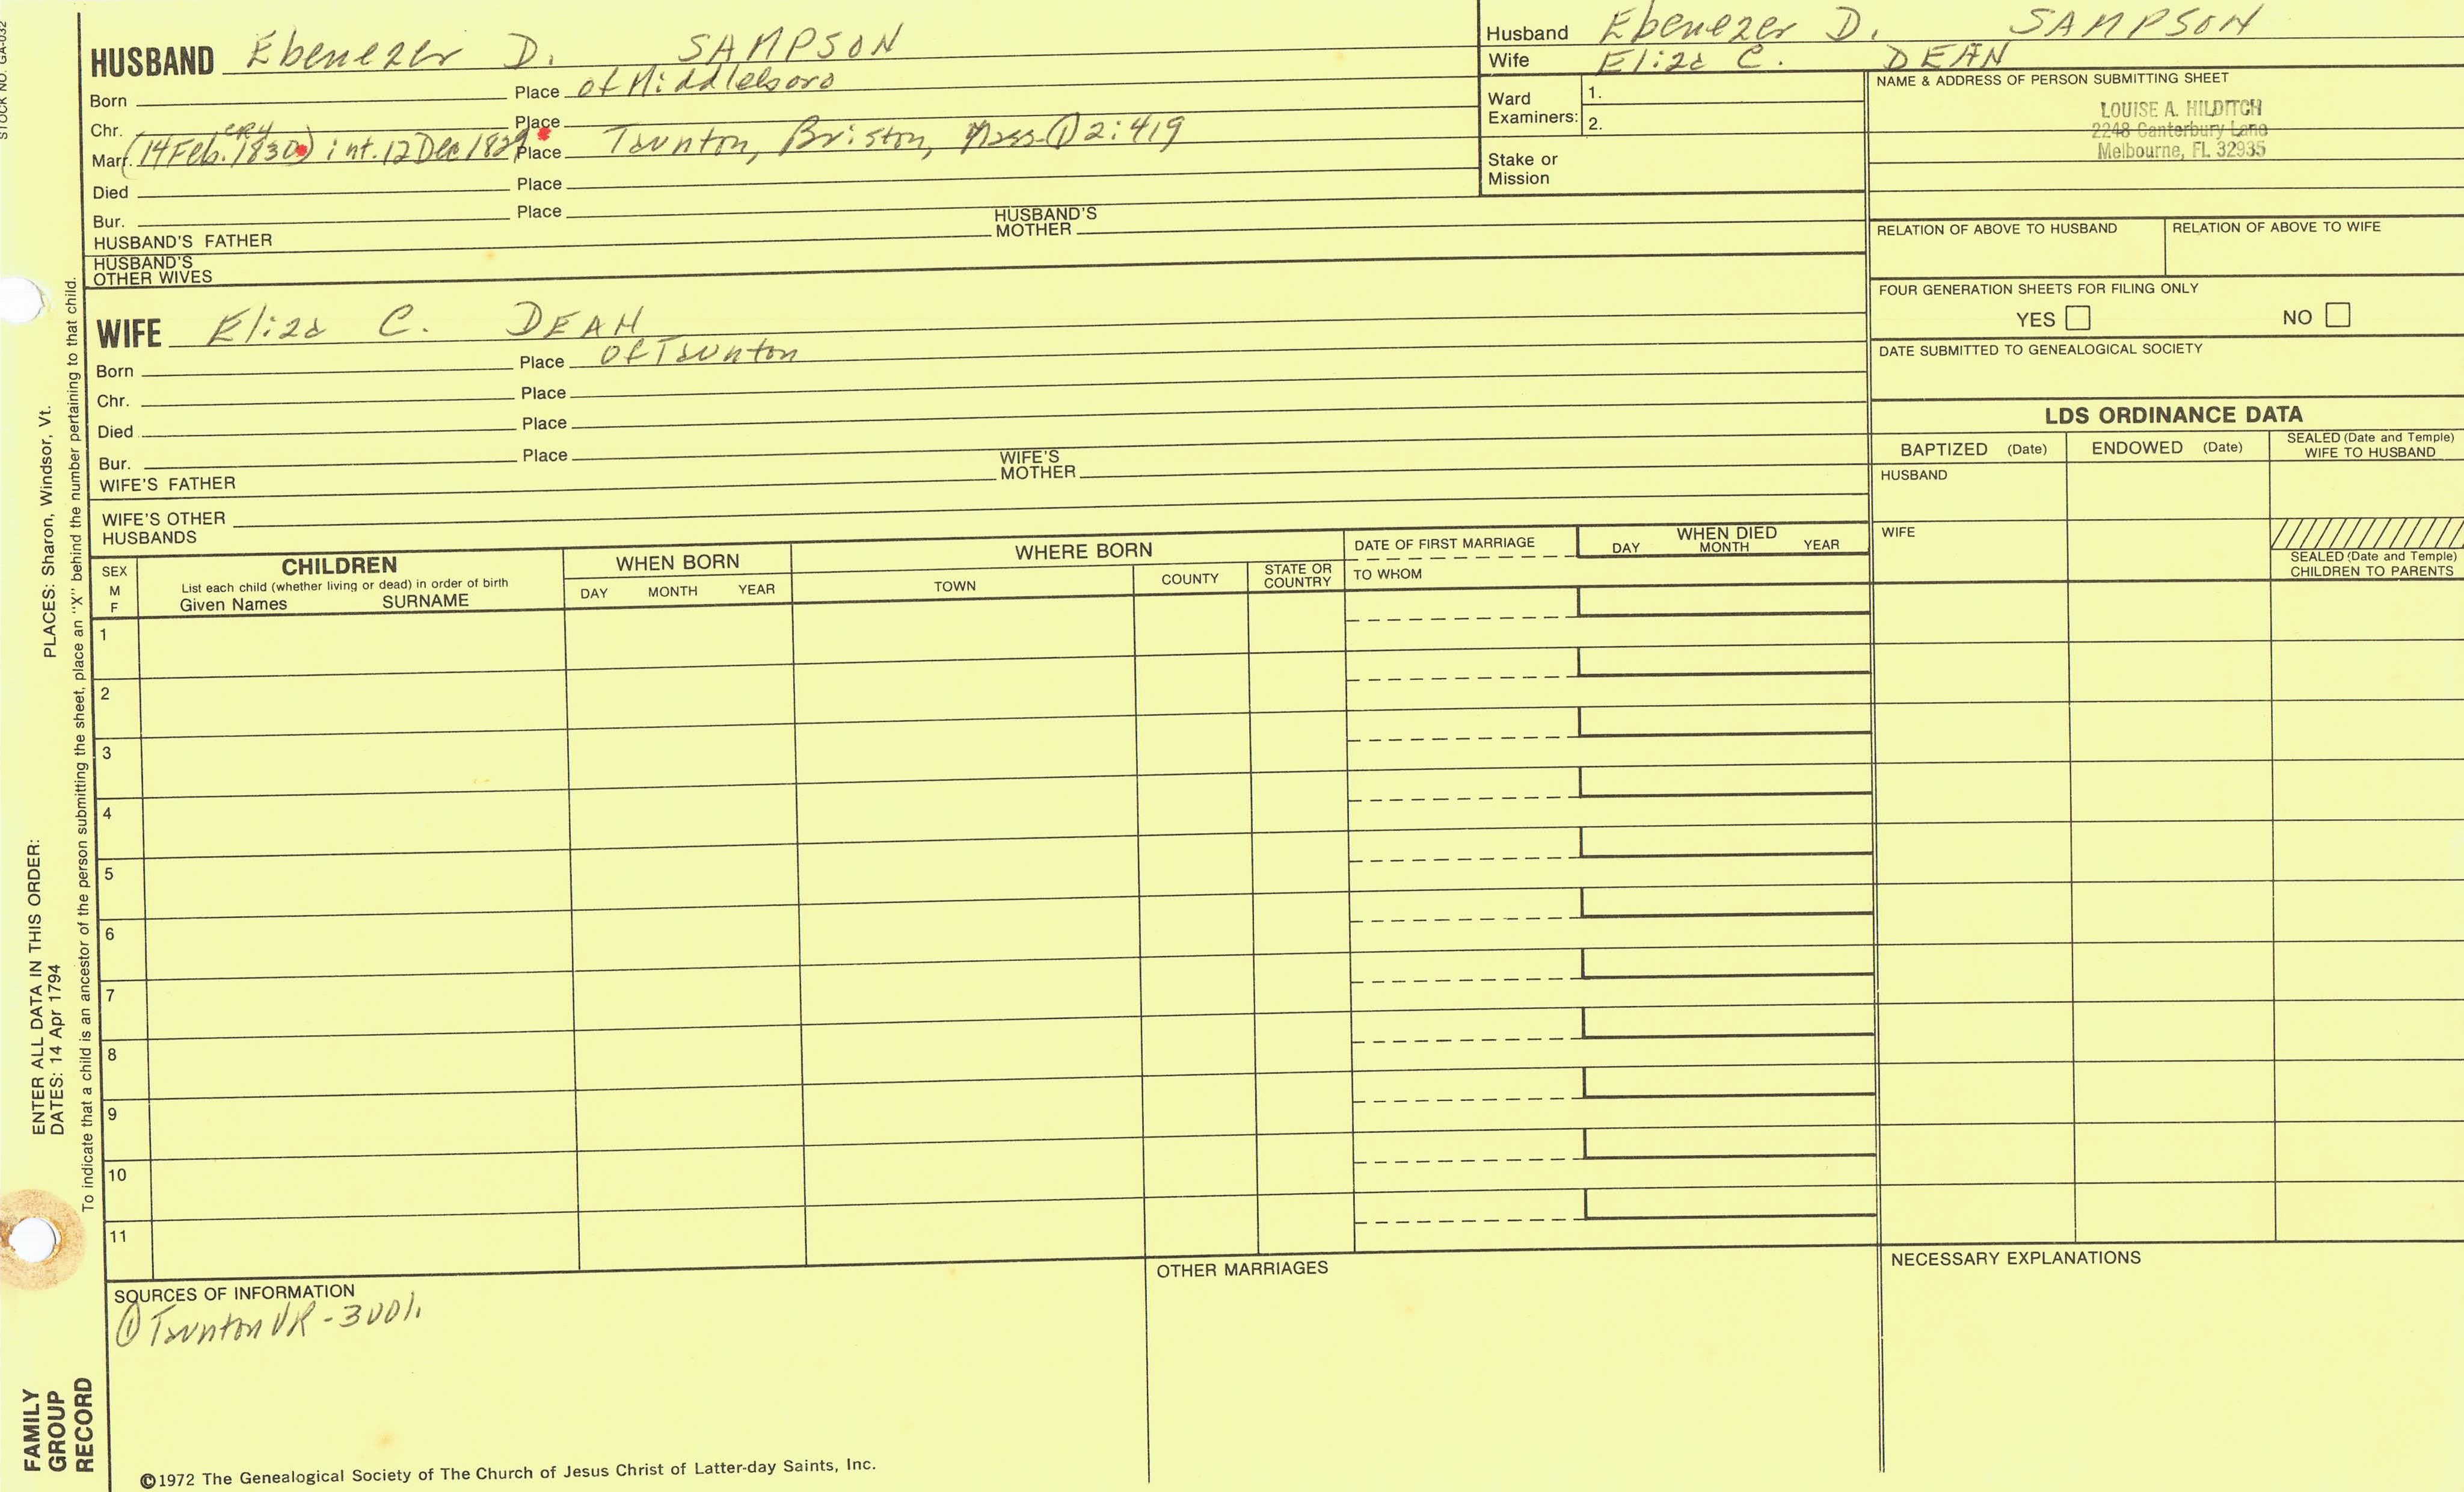 STOCK NO. GA-032
HUSBAND Ebenezer D. SAMPSON
Born Place of Middleboro
Chr. Place
Marr. (14 Feb. 1830) int. 12 Dec 1829 Place Taunton, Briston, Mass. ① 2:419
Died Place
Bur. Place
HUSBAND'S FATHER HUSBAND'S MOTHER
HUSBAND'S OTHER WIVES
WIFE Eliza C. DEAN
Born Place of Taunton
Chr. Place
Died Place
Bur. Place
WIFE'S FATHER WIFE'S MOTHER
WIFE'S OTHER HUSBANDS
Husband Ebenezer D. SAMPSON
Wife Eliza C. DEAN
Ward Examiners: 1.
2.
Stake or Mission
NAME & ADDRESS OF PERSON SUBMITTING SHEET
LOUISE A. HILDITCH
2248 Canterbury Lane
Melbourne, FL 32935
RELATION OF ABOVE TO HUSBAND RELATION OF ABOVE TO WIFE
FOUR GENERATION SHEETS FOR FILING ONLY
YES NO
DATE SUBMITTED TO GENEALOGICAL SOCIETY
LDS ORDINANCE DATA
BAPTIZED (Date) ENDOWED (Date) SEALED (Date and Temple) WIFE TO HUSBAND
HUSBAND
WIFE
SEALED (Date and Temple) CHILDREN TO PARENTS
SEX M F
CHILDREN
List each child (whether living or dead) in order of birth
Given Names SURNAME
WHEN BORN
DAY MONTH YEAR
WHERE BORN
TOWN COUNTY STATE OR COUNTRY
DATE OF FIRST MARRIAGE
TO WHOM
WHEN DIED
DAY MONTH YEAR
1
2
3
4
5
6
7
8
9
10
11
SOURCES OF INFORMATION
① Taunton VR - 3 vol.
OTHER MARRIAGES
NECESSARY EXPLANATIONS
©1972 The Genealogical Society of The Church of Jesus Christ of Latter-day Saints, Inc.
FAMILY GROUP RECORD
ENTER ALL DATA IN THIS ORDER:
DATES: 14 Apr 1794
PLACES: Sharon, Windsor, Vt.
To indicate that a child is an ancestor of the person submitting the sheet, place an "X" behind the number pertaining to that child.